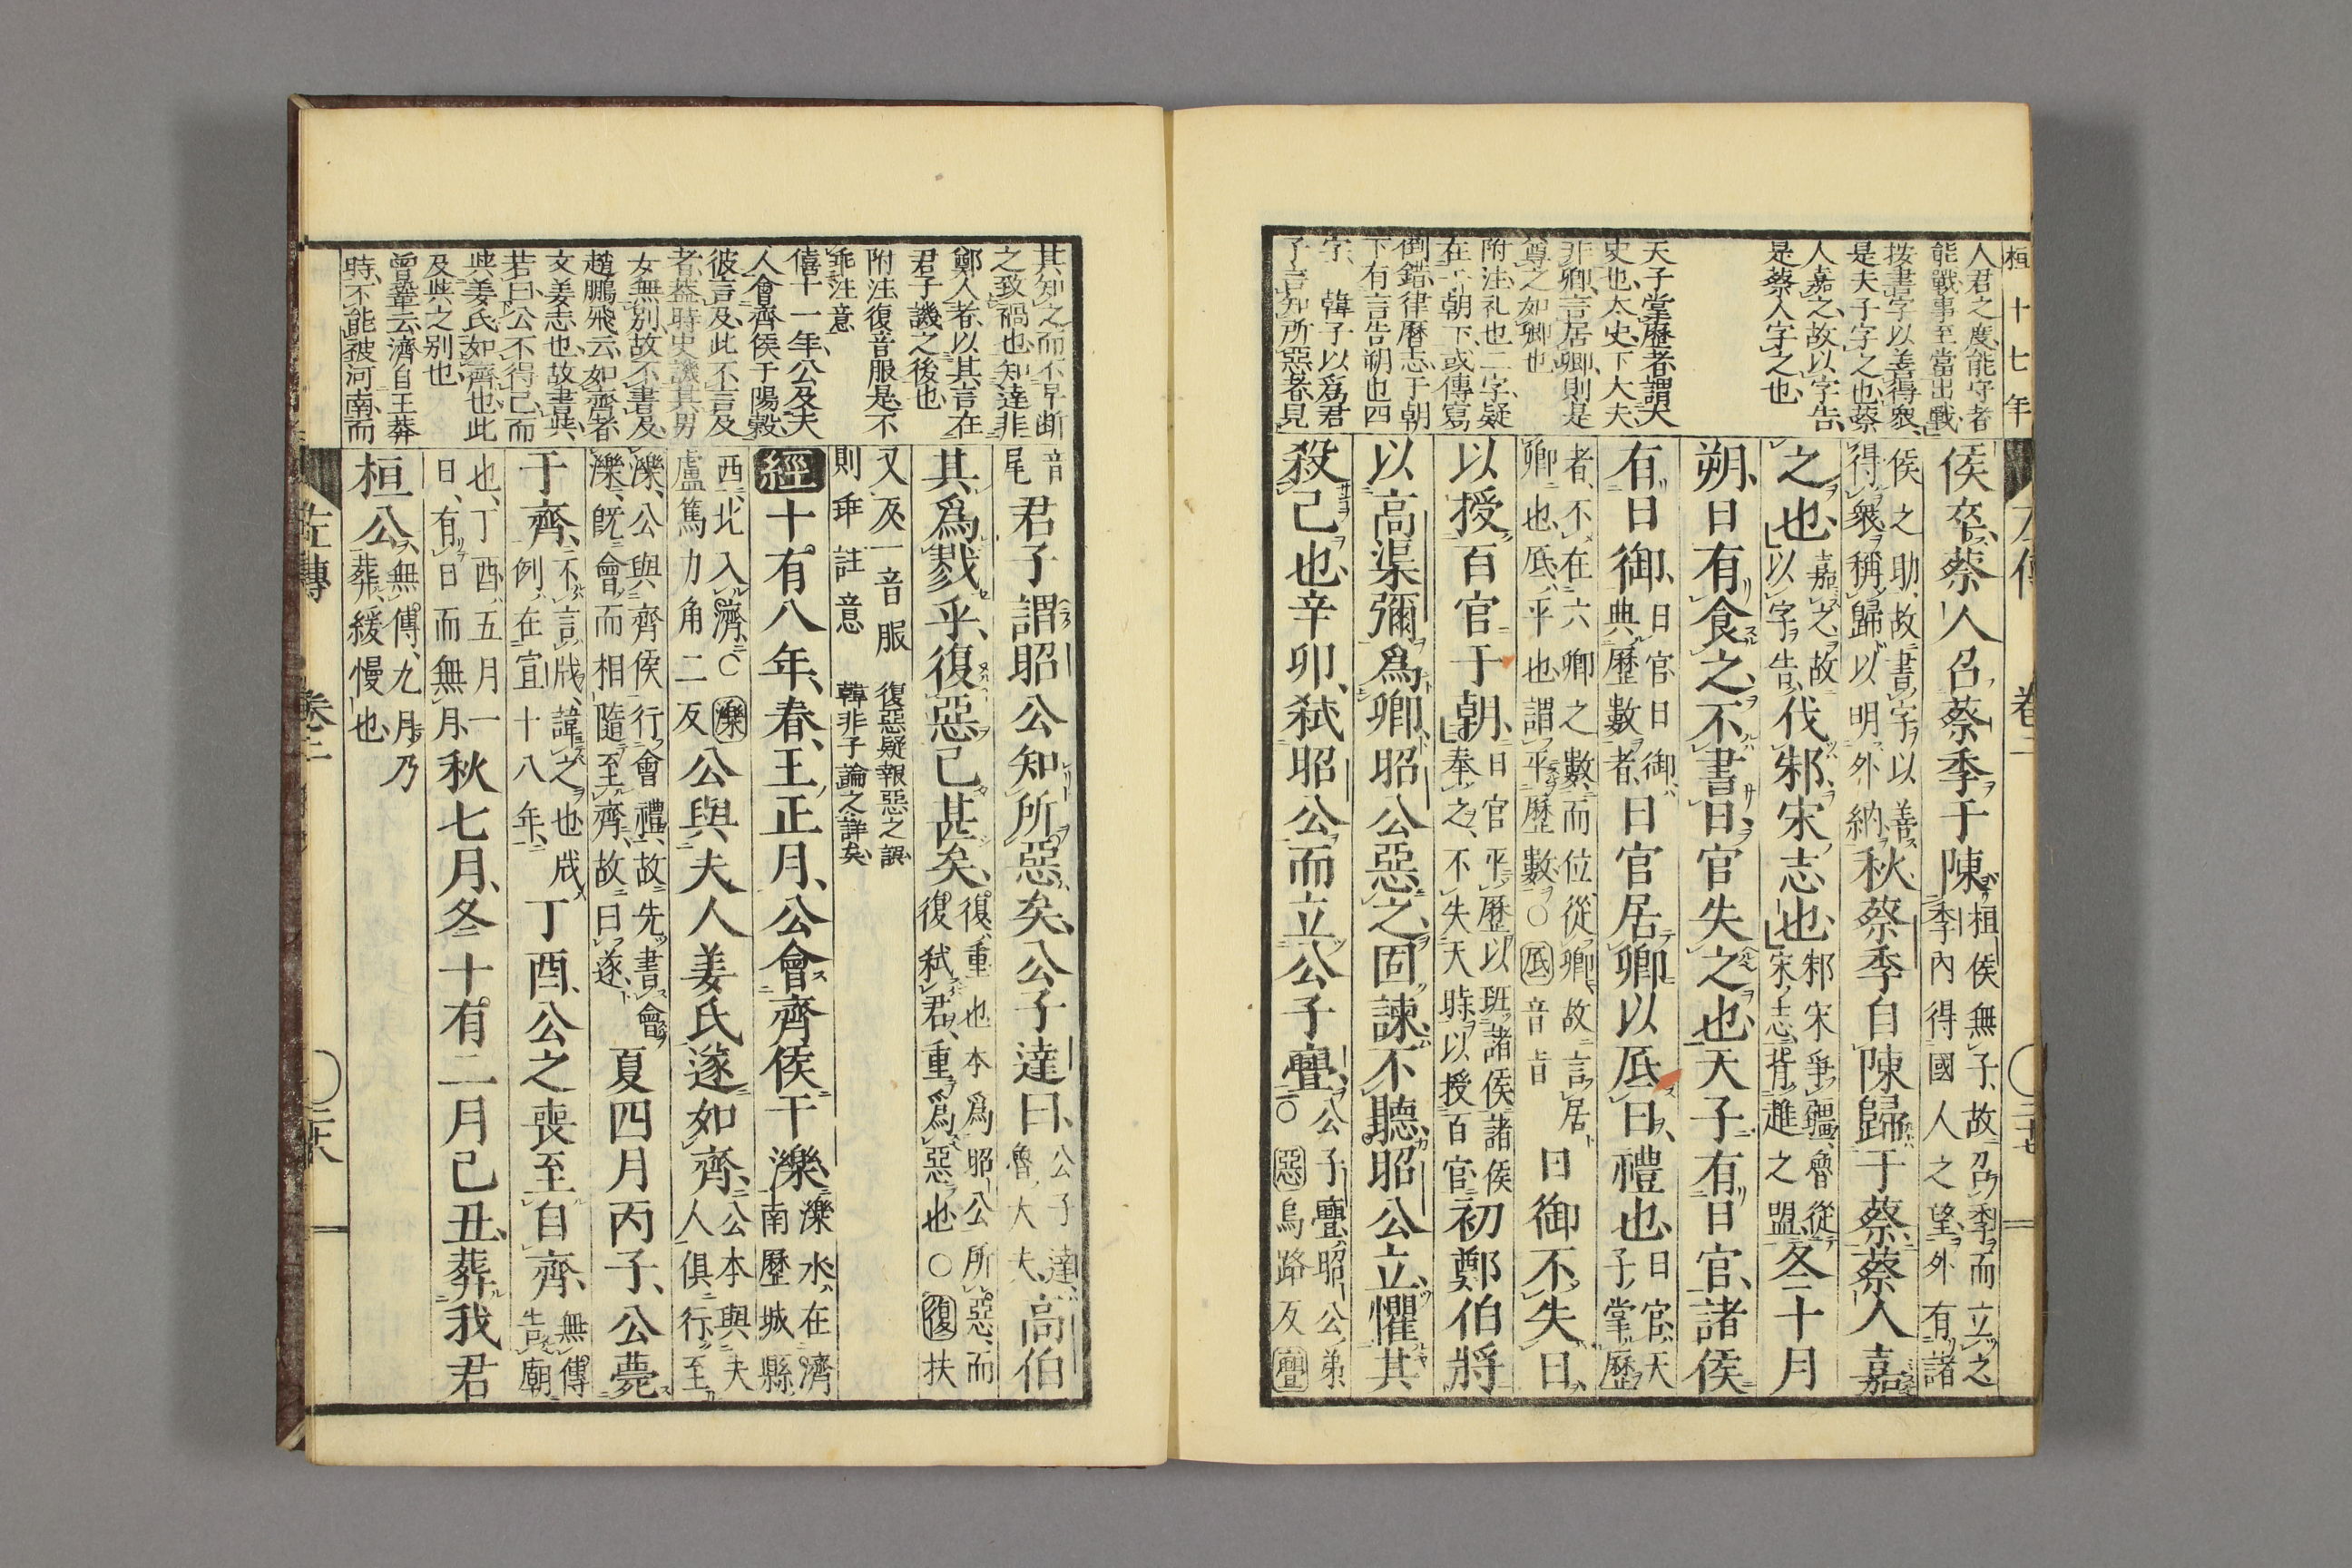 桓十七年
人君之度能守者
能戰事至當出戰
按書字以善得衆
是夫子字之也蔡
人嘉之故以字告
是蔡人字之也
天子掌歷者謂大
史也太史下大夫
非卿言居卿則是
尊之如卿也
附注礼也二字疑
在于朝下或傳寫
倒錯律曆志于朝
下有言告朔也四
字 韓子以爲君
子言知所惡者見
左傳 卷二 二十七
侯卒蔡人召蔡季于陳桓侯無子故召季而立之
季內得國人之望外有諸
侯之助故書字以善
得衆稱歸以明外納秋蔡季自陳歸于蔡蔡人嘉
之也嘉之故
以字告伐邾宋志也邾宋爭疆魯從
宋志背趡之盟冬十月
朔日有食之不書日官失之也天子有日官諸侯
有日御日官日御
典歷數者日官居卿以底日禮也日官天
子掌歷
者不在六卿之數而位從卿故言居
卿也底平也謂平歷數○底音旨日御不失日
以授百官于朝日官平歷以班諸侯諸侯
奉之不失天時以授百官初鄭伯將
以高渠彌爲卿昭公惡之固諫不聽昭公立懼其
殺己也辛卯弑昭公而立公子亹公子亹昭公弟
○惡烏路反亹
其知之而不早断
之致禍也知達非
鄭人者以其言在
君子譏之後也
附注復音服是不
乖注意
僖十一年公及夫
人會齊侯于陽穀
彼言及此不言及
者葢時史譏其男
女無別故不書及
趙鵬飛云如齊者
文姜志也故書與
若曰公不得已而
與姜氏如齊也此
及與之別也
曾鞏云濟自王莽
時不能被河南而
音
尾君子謂昭公知所惡矣公子達曰公子達
魯大夫高伯
其爲戮乎復惡已甚矣復重也本爲昭公所惡而
復弑君重爲惡也○復扶
又反一音服
則乖註意
復惡疑報惡之誤
韓非子論之詳矣
經十有八年春王正月公會齊侯于濼濼水在濟
南歷城縣
西北入濟○濼
盧篤力角二反公與夫人姜氏遂如齊公本與夫
人俱行至
濼公與齊侯行會禮故先書會
濼既會而相隨至齊故曰遂夏四月丙子公薨
于齊不言戕諱之也戕
例在宣十八年丁酉公之喪至自齊無傳
告廟
也丁酉五月一
日有日而無月秋七月冬十有二月己丑葬我君
桓公無傳九月乃
葬緩慢也
左傳 卷二 二十八